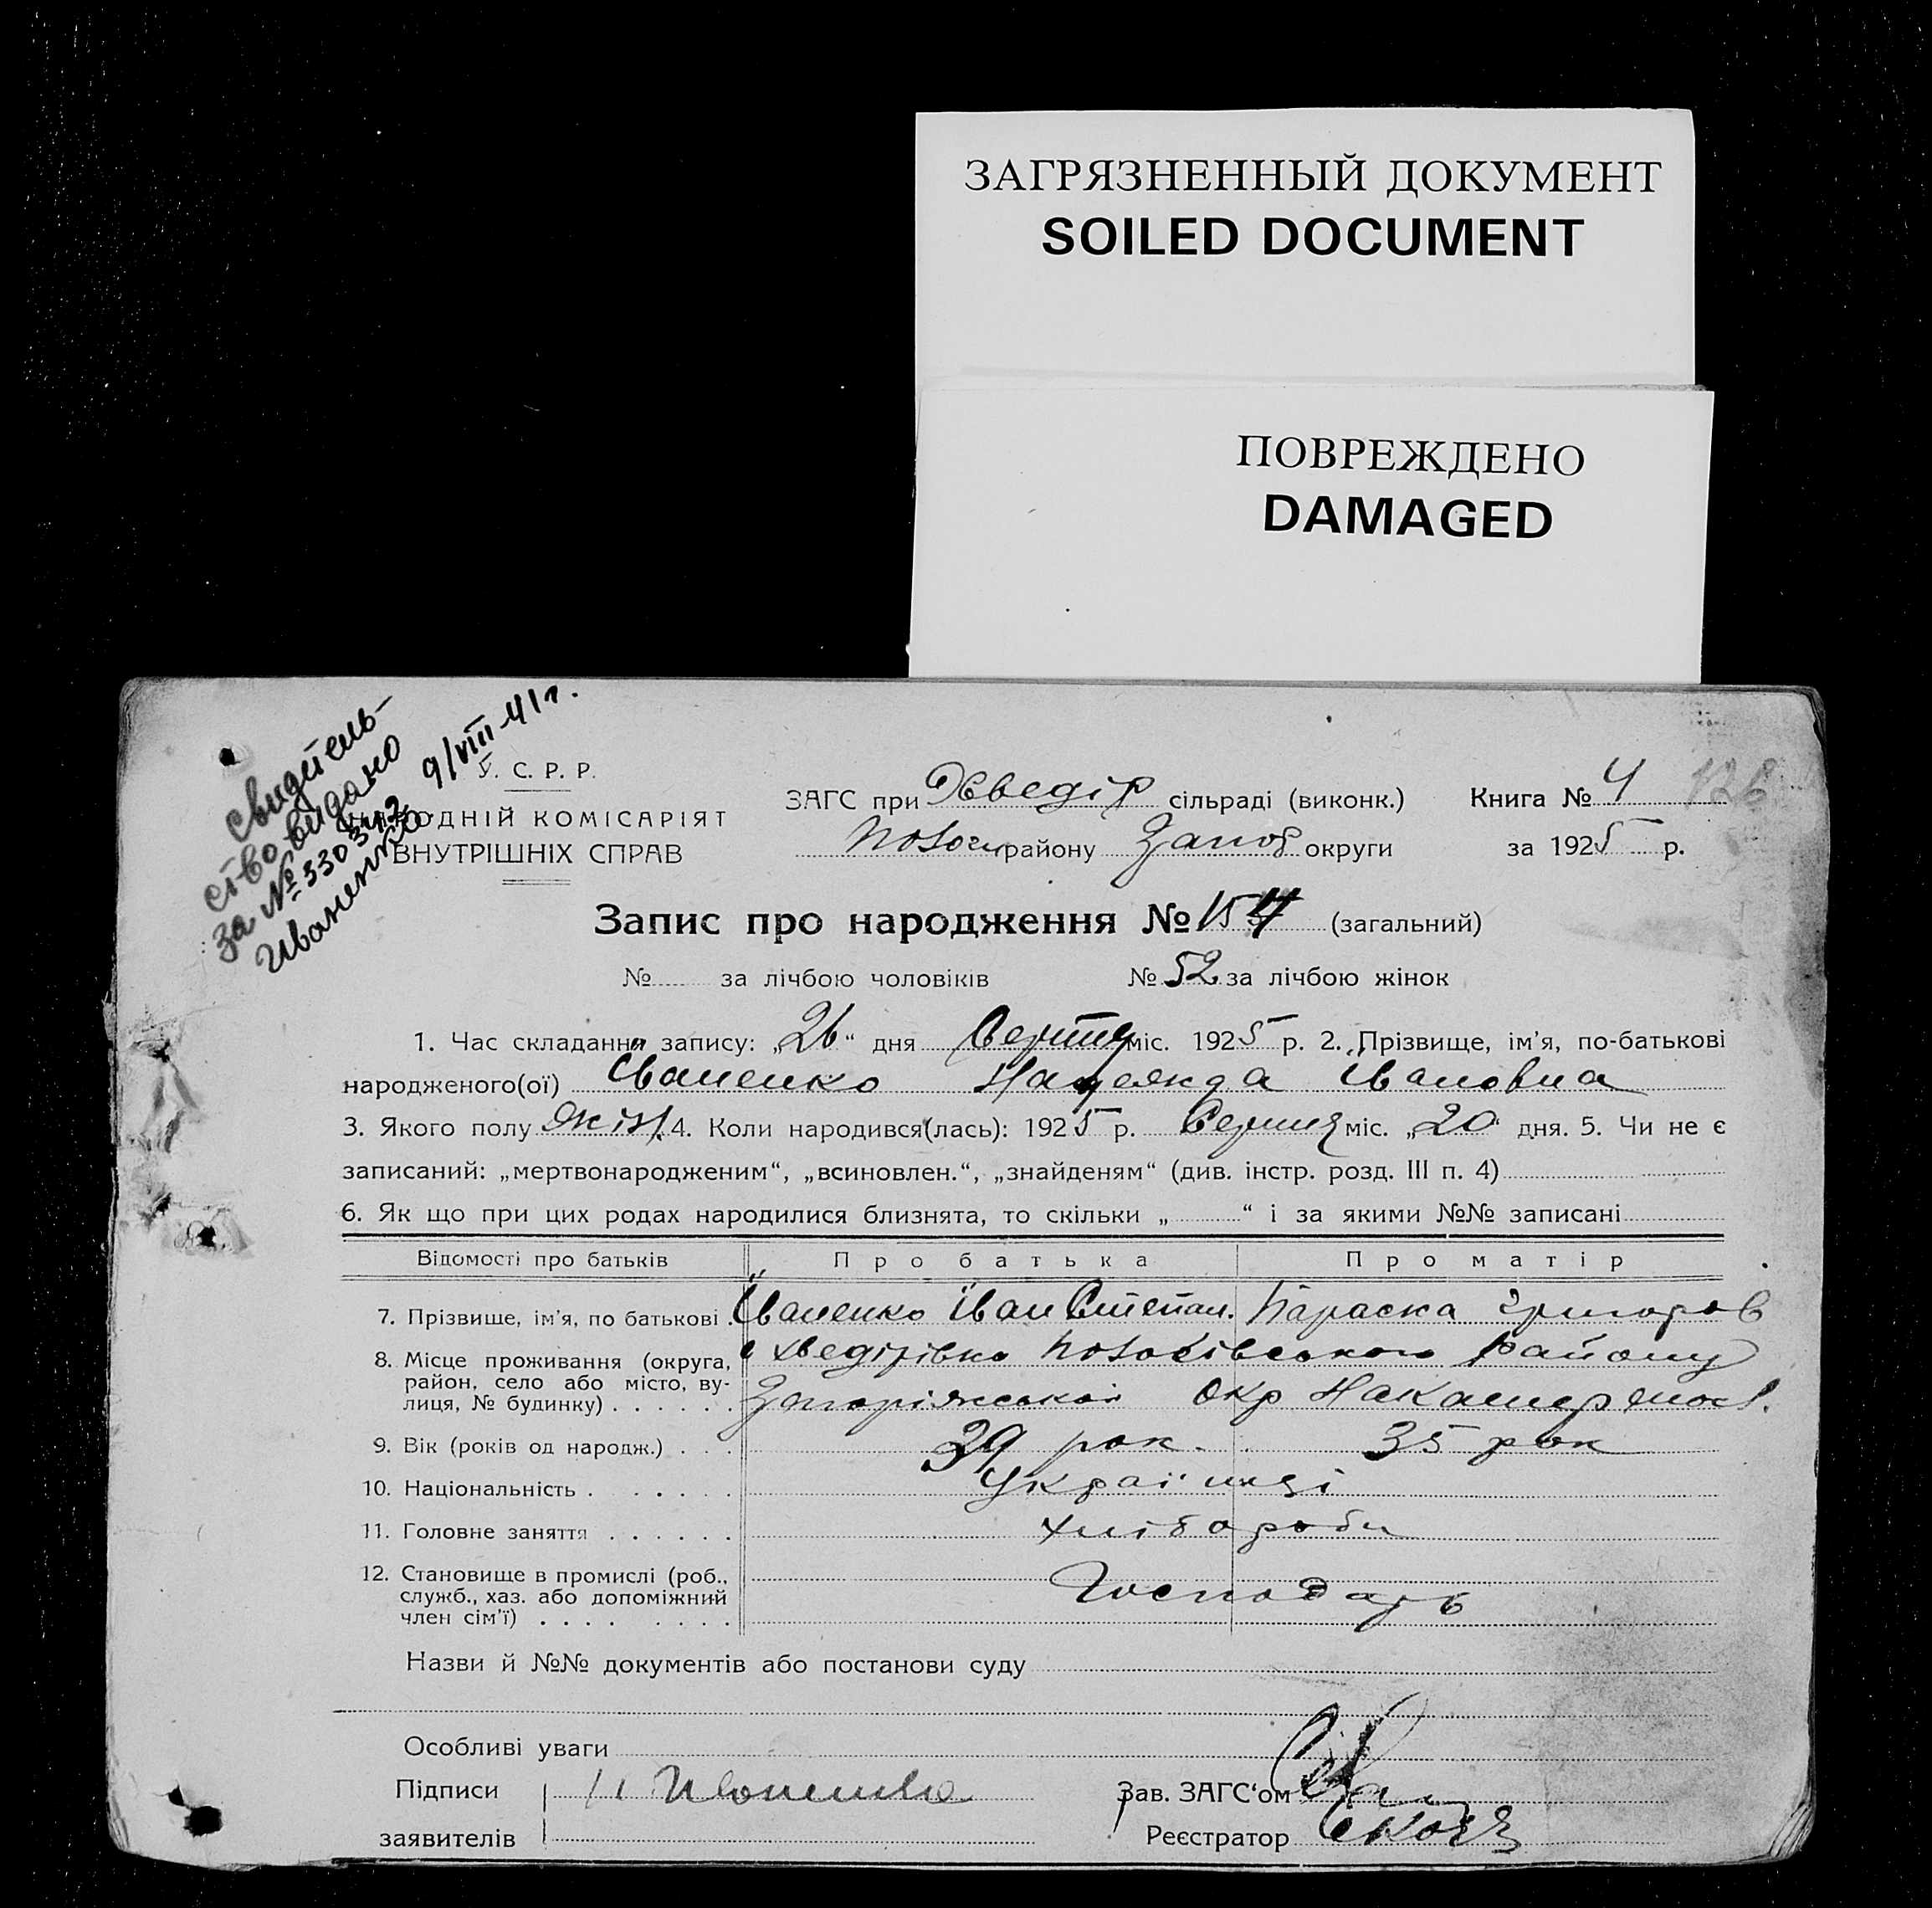 ЗАГРЯЗНЕННЫЙ ДОКУМЕНТ
SOILED DOCUMENT
ПОВРЕЖДЕНО
DAMAGED
свидетель-
ство видано
за № 330342 9/VIII-41 г.
Иваненко
У. С. Р. Р.
НАРОДНІЙ КОМІСАРІЯТ
ВНУТРІШНІХ СПРАВ
ЗАГС при Хведір сільраді (виконк.)
району Запоб округи
Книга № 4
126
за 1925 р.
Запис про народження № 154 (загальний)
№ за лічбою чоловіків № 52 за лічбою жінок
1. Час складання запису: „26“ дня Серпня міс. 1925 р. 2. Прізвище, ім'я, по-батькові
народженого(ої) Іваненко Надежда Івановна
3. Якого полу жін. 4. Коли народився(лась): 1925 р. Серпня міс. „20“ дня. 5. Чи не є
записаний: „мертвонародженим“, „всиновлен.“, „знайденям“ (див. інстр. розд. III п. 4)
6. Як що при цих родах народилися близнята, то скільки „ “ і за якими №№ записані
Відомості про батьків Про батька Про матір
7. Прізвище, ім'я, по батькові Іваненко Іван Степан. Параска Григоров
8. Місце проживання (округа, район, село або місто, ву-
лиця, № будинку) с Хведірівка району
Запоріжської Окр
9. Вік (років од народж.) 39 рок. 35 рок
10. Національність Українці
11. Головне заняття хлібороби
12. Становище в промислі (роб.,
служб., хаз. або допоміжний
член сім'ї) Господарь
Назви й №№ документів або постанови суду
Особливі уваги
Підписи
заявителів
Зав. ЗАГС'ом
Реєстратор